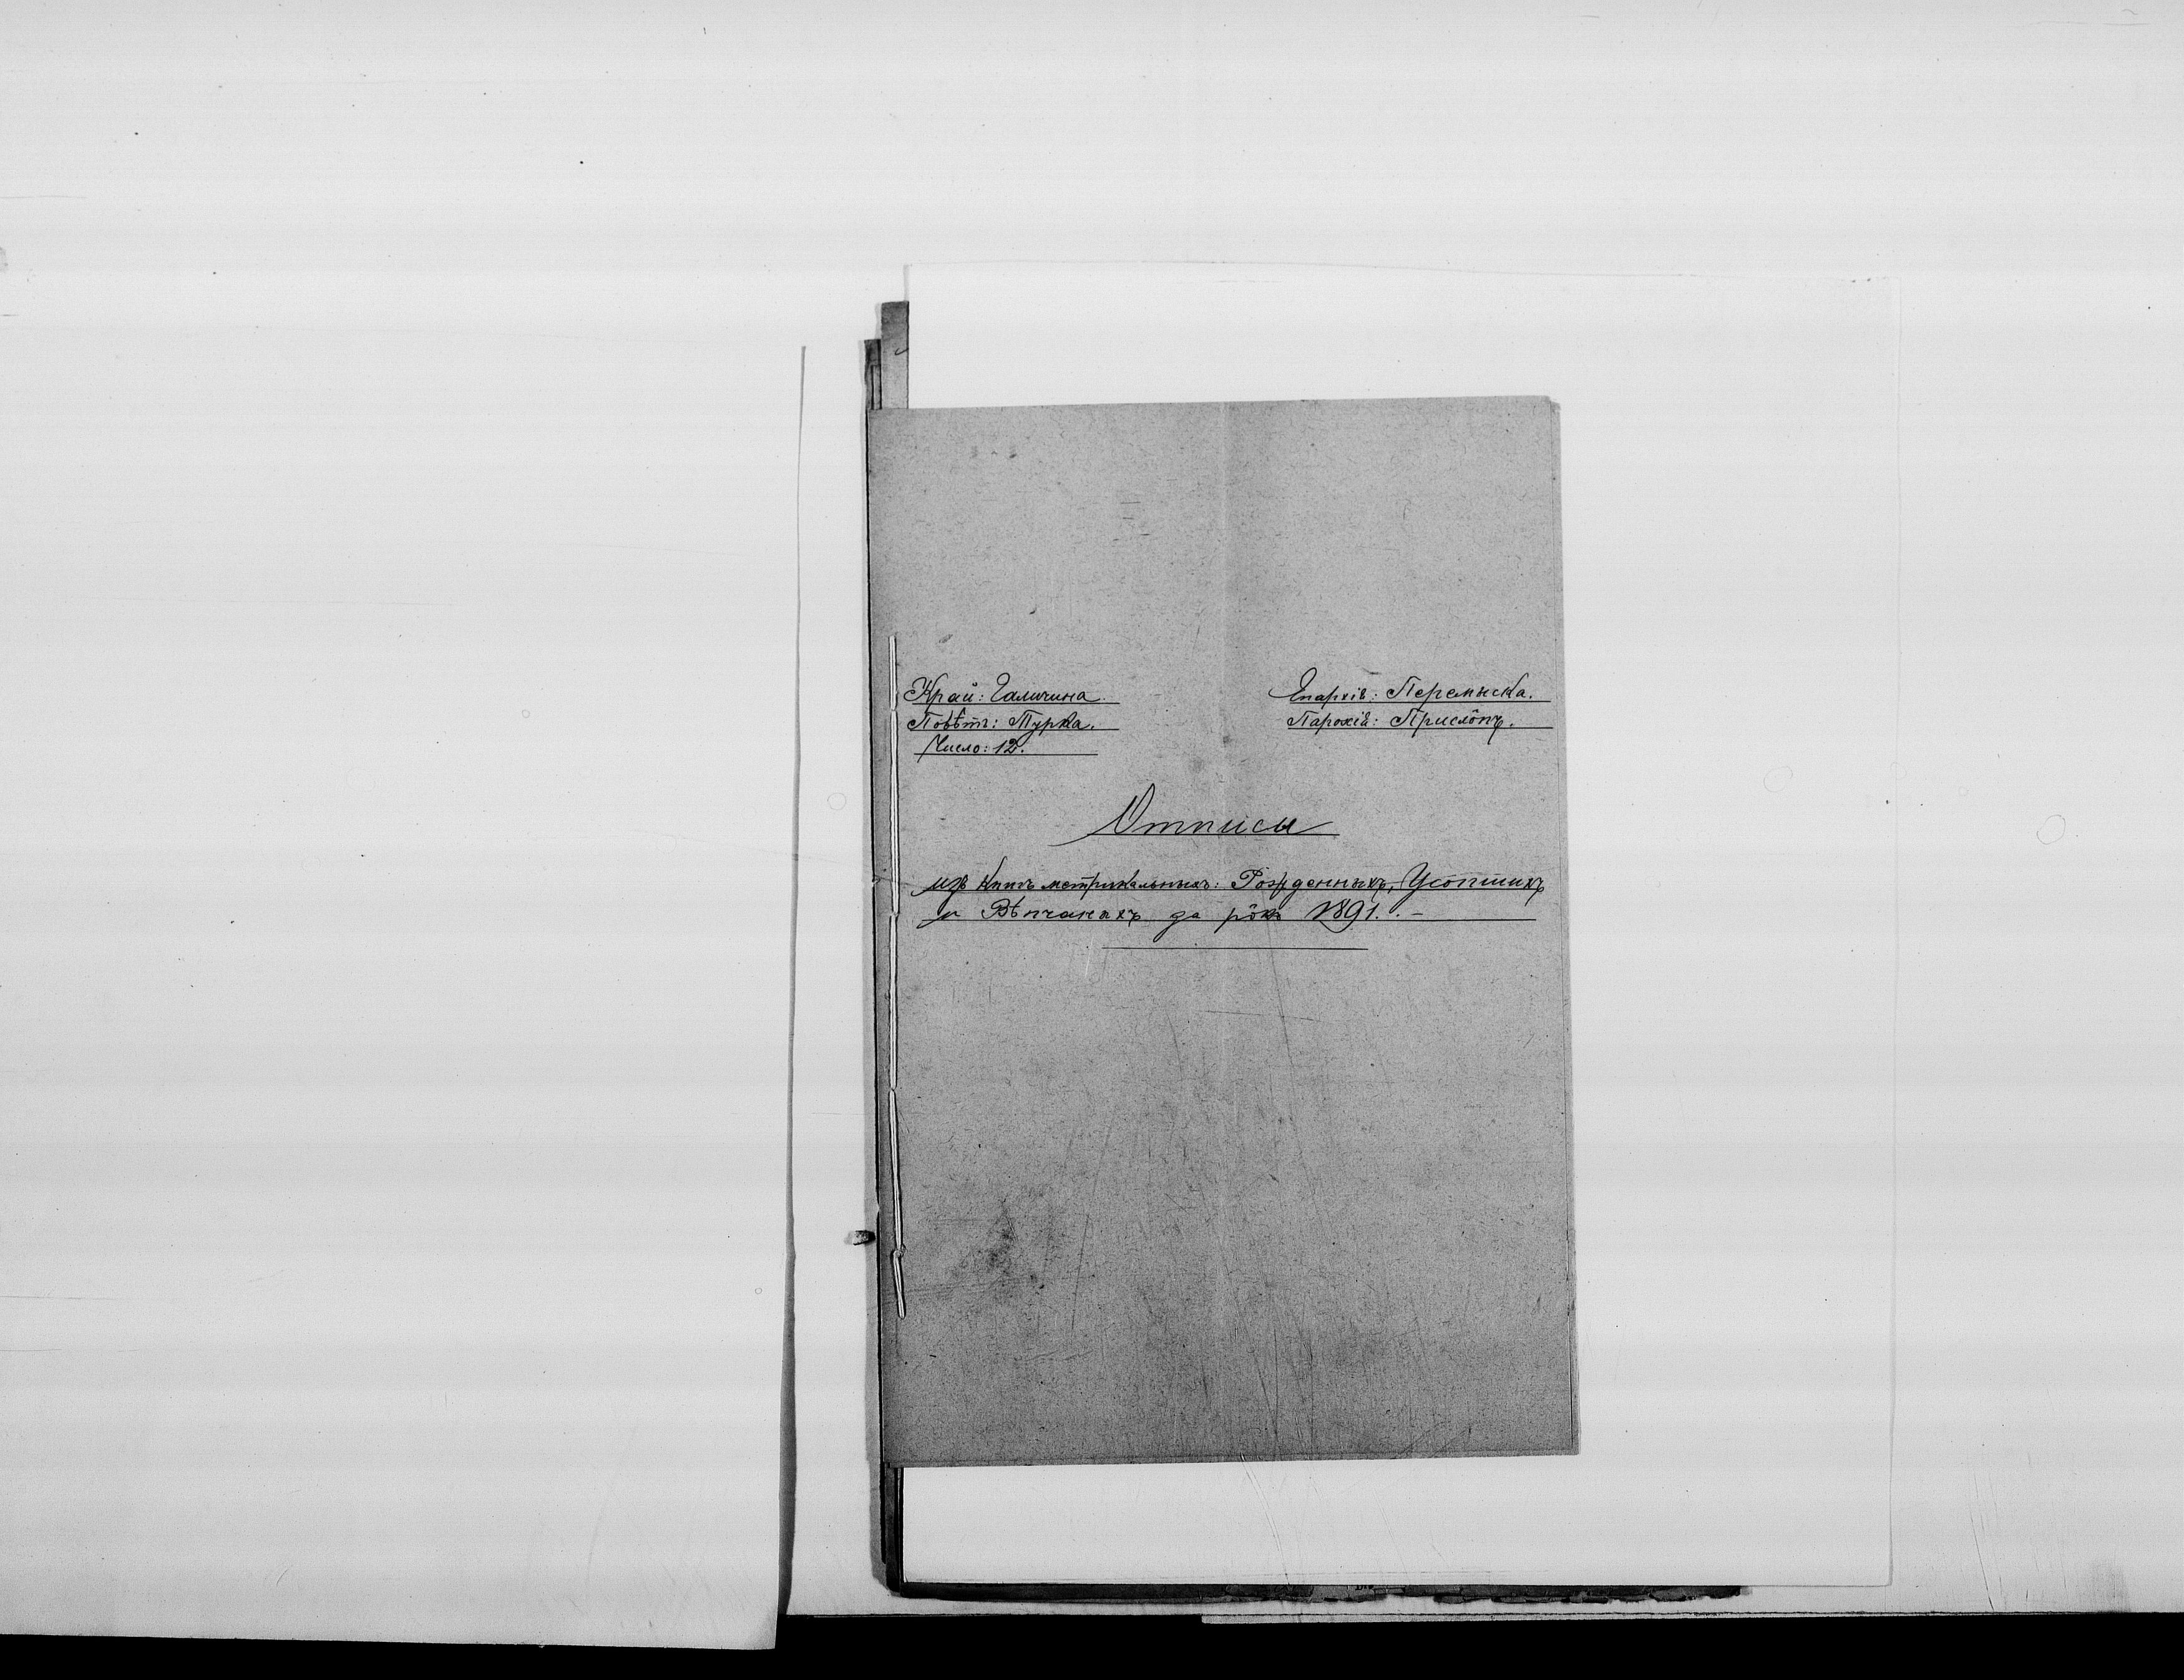 Край: Галичина.
Епархія: Перемыска.
Повѣтъ: Турка.
Парохія: Прислôпъ.
Число: 12.
Отписи
изъ Книгъ метрикальныхъ: Рожденныхъ, Усопшихъ
и Вѣнчаныхъ за рôкъ 1891. –